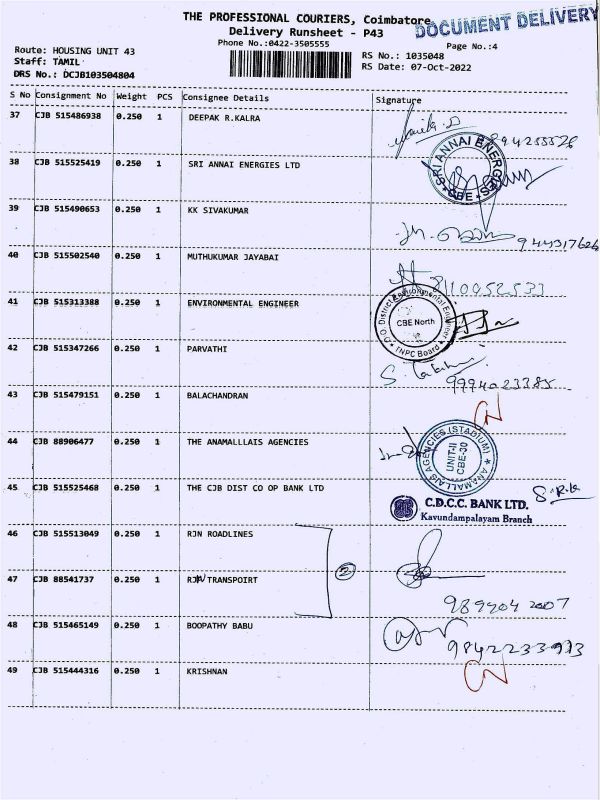 THE PROFESSIONAL COURIERS, Coimbatore
DOCUMENT DELIVERY
Delivery Runsheet - P43
Phone No.:0422-3505555
Page No.:4
Route: HOUSING UNIT 43
RS No.: 1035048
Staff: TAMIL
RS Date: 07-Oct-2022
DRS No.: DCJB103504804
S No Consignment No Weight PCS Consignee Details Signature
37 CJB 515486938 0.250 1 DEEPAK R.KALRA
38 CJB 515525419 0.250 1 SRI ANNAI ENERGIES LTD
SRI ANNAI ENERGIES
CBE
39 CJB 515490653 0.250 1 KK SIVAKUMAR
40 CJB 515502540 0.250 1 MUTHUKUMAR JAYABAI
8110052533
41 CJB 515313388 0.250 1 ENVIRONMENTAL ENGINEER
O/O District Environmental Engineer
CBE North
TNPC Board
42 CJB 515347266 0.250 1 PARVATHI
9994023385
43 CJB 515479151 0.250 1 BALACHANDRAN
44 CJB 88906477 0.250 1 THE ANAMALLLAIS AGENCIES
ANAMALLAIS AGENCIES (STADIUM)
UNIT-II
CBE-30
45 CJB 515525468 0.250 1 THE CJB DIST CO OP BANK LTD
C.D.C.C. BANK LTD.
Kavundampalayam Branch
46 CJB 515513049 0.250 1 RJN ROADLINES
2
47 CJB 88541737 0.250 1 RJN TRANSPOIRT
989404 2007
48 CJB 515465149 0.250 1 BOOPATHY BABU
9842233913
49 CJB 515444316 0.250 1 KRISHNAN